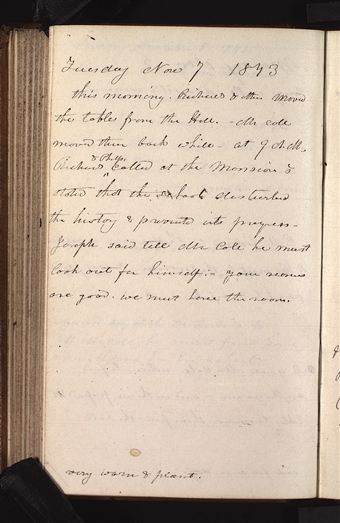 Tuesday Nov 7 1843
this morning. Richards & other moved
the tables from the Hall. - Mr cole
moved them back while - at 9 A.M.
Richards & Phelps called at the Mansion &
stated that the school disturbed
the history & prevented its progress -
Joseph said tell Mr Cole he must
look out for himself: - your reasons
are good. we must have the room.
very warm & plesant.